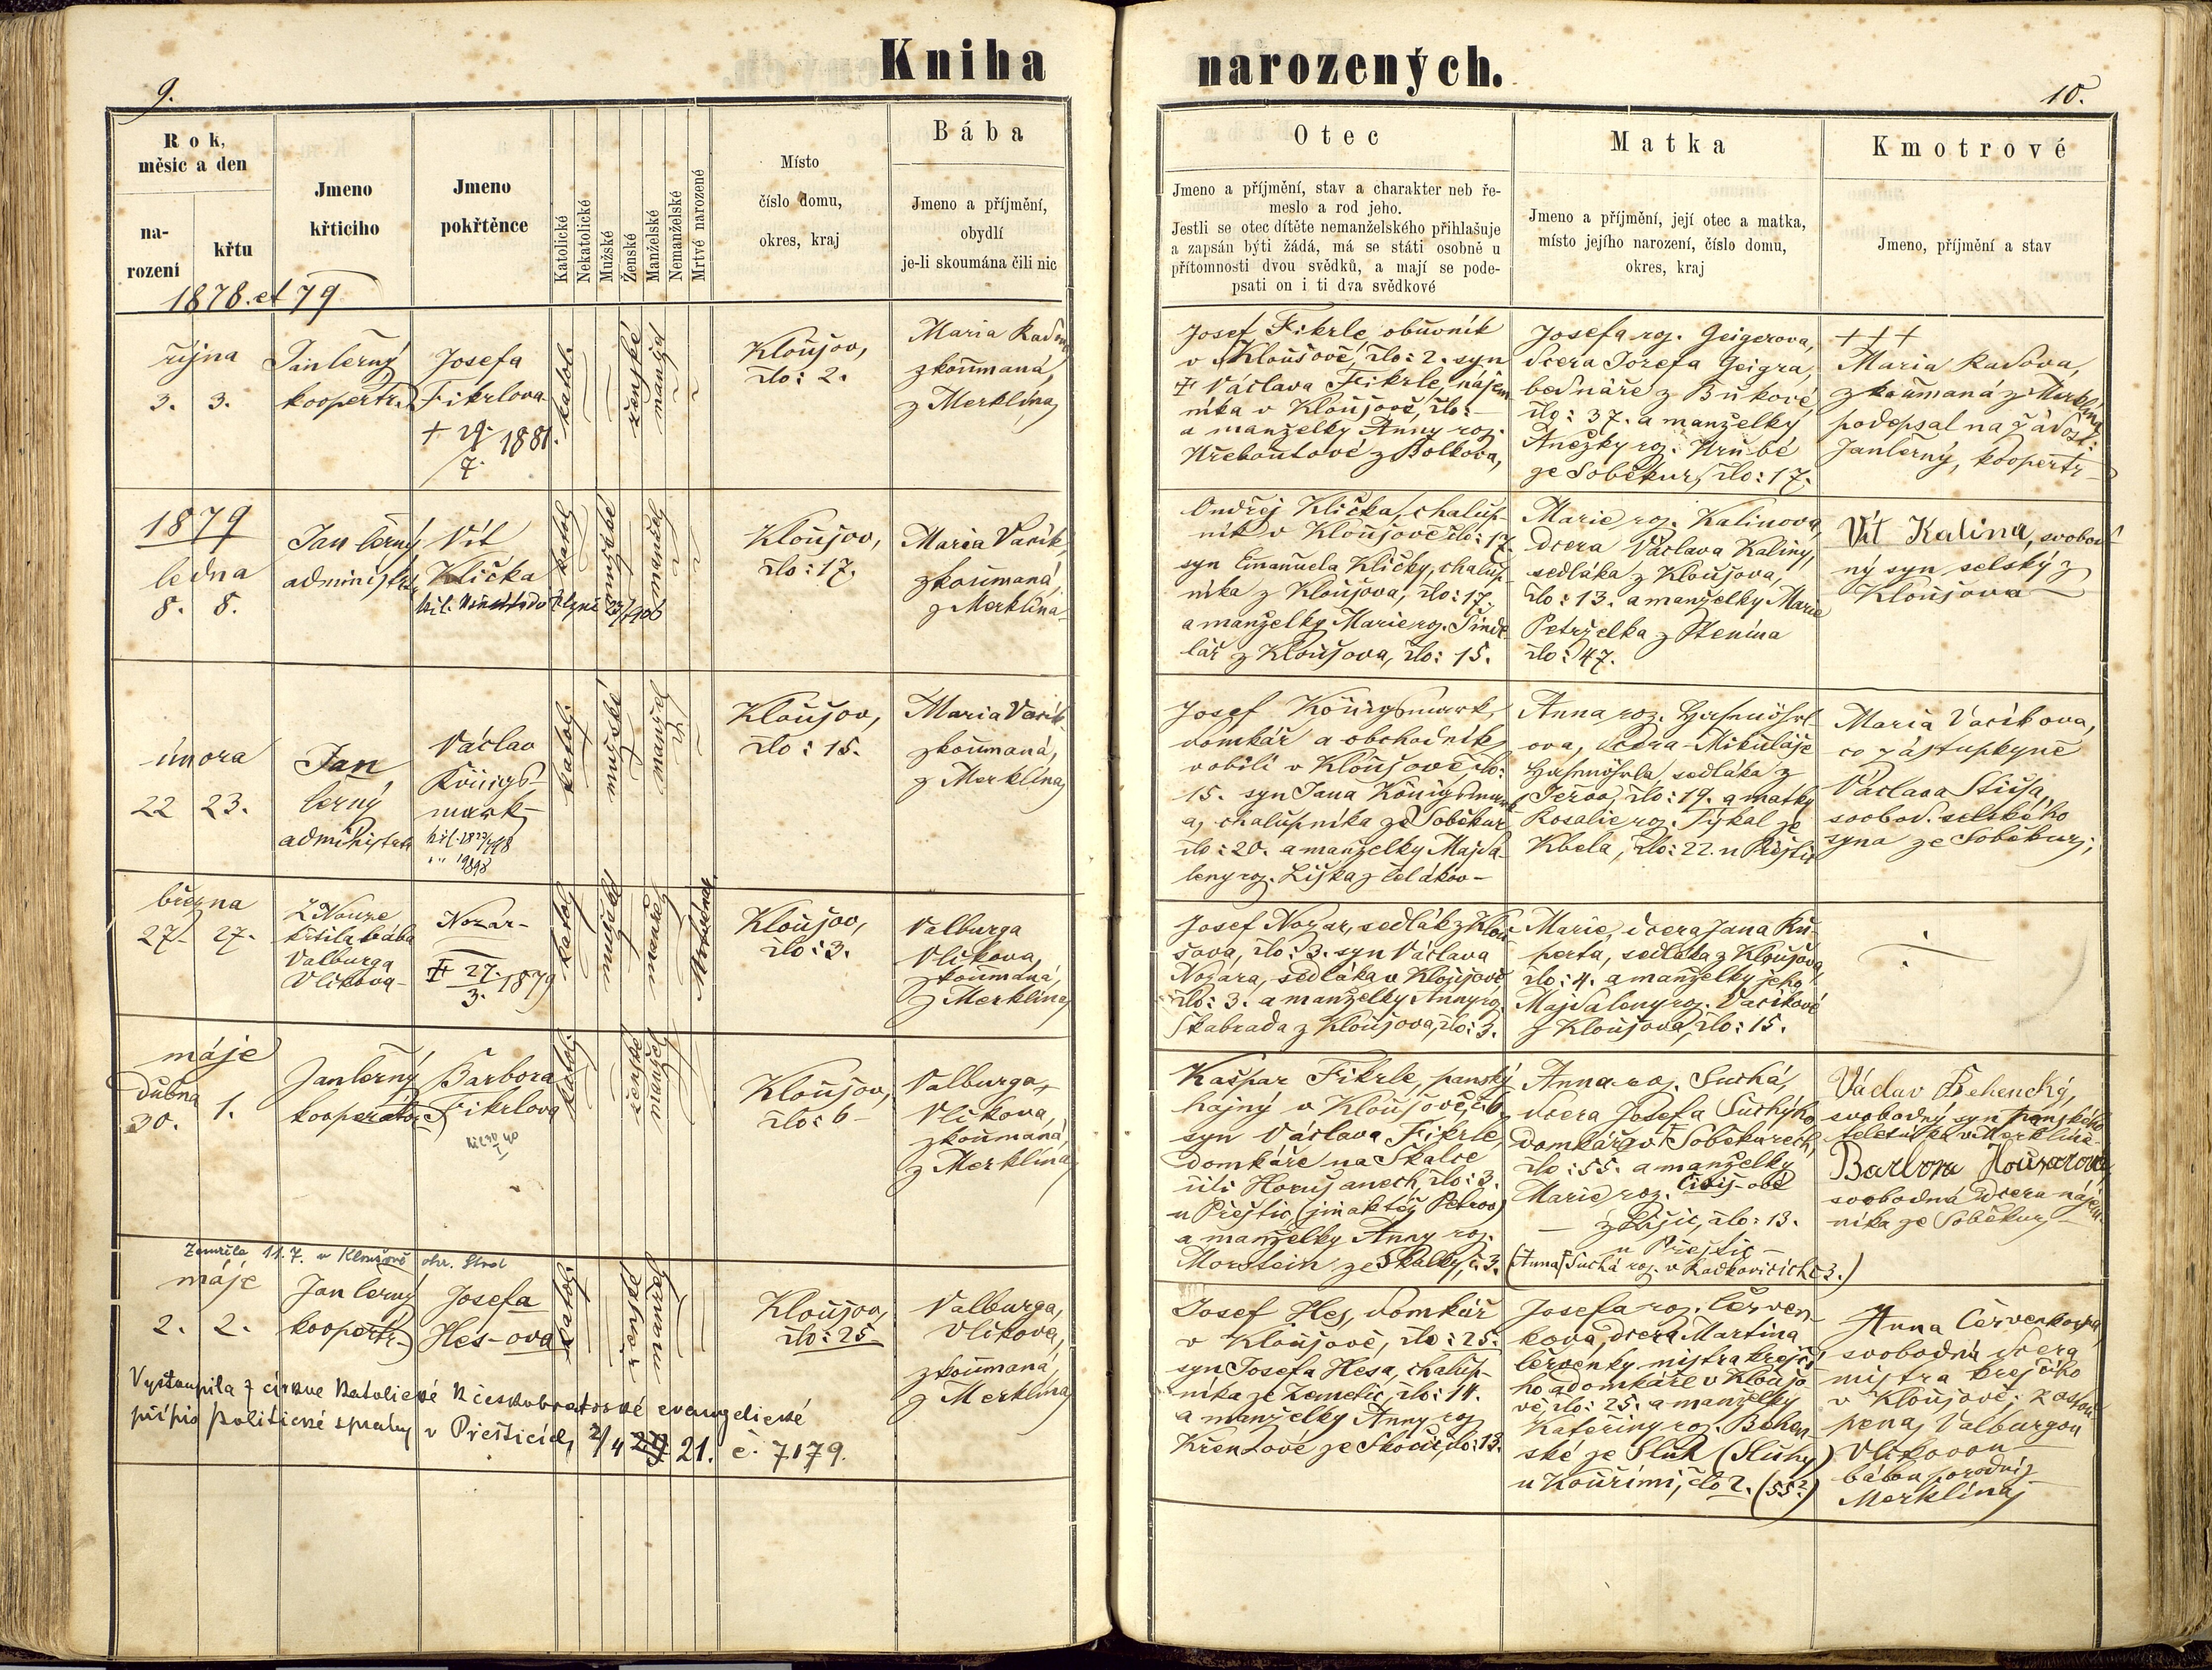 Kniha
narozených.
9.
10.
Rok,
měsíc a den
na-
rození
křtu
Jmeno
křticího
Jmeno
pokřtěnce
Katolické
Nekatolické
Mužské
Ženské
Manželské
Nemanželské
Mrtvé narozené
Místo
číslo domu,
okres, kraj
Bába
Jmeno a příjmění,
obydlí
je-li skoumána čili nic
Otec
Jmeno a příjmění, stav a charakter neb ře-
meslo a rod jeho.
Jestli se otec dítěte nemanželského přihlašuje
a zapsán býti žádá, má se státi osobně u
přítomnosti dvou svědků, a mají se pode-
psati on i ti dva svědkové
Matka
Jmeno a příjmění, její otec a matka,
místo jejího narození, číslo domu,
okres, kraj
Kmotrové
Jmeno, příjmění a stav
1878. et 79
října
3. 3.
Jan Černý
koopertr.
Josefa
Fikrlova
+ 29. 1881.
7.
katol.
ženské
manžel
Kloušov,
člo: 2.
Maria
zkoumaná,
z Merklína
Josef Fikrle, obuvník
v Kloušově, člo: 2. syn
+ Václava Fikrle, nájem
níka v Kloušově, člo: –
a manželky Anny roz.
z Bolkova,
Josefa roz. Geigerova,
dcera Josefa Geigra,
bednáře z Bukové,
člo: 37. a manželky
Anežky roz. Hrubé
ze Soběkur, člo: 17.
+++
Maria Radova,
zkoumaná z Merklína
podepsal na žádost:
Jan Černý, koopertr
1879
ledna
8. 8.
Jan Černý
administr.
Vít
Klička
katol
mužské
manžel
Kloušov,
člo: 17.
Maria Vacík,
zkoumaná,
z Merklína
Ondřej Klička, chalup-
ník v Kloušově člo: 17
syn Emanuela Kličky, chalup-
níka z Kloušova, člo: 17.
a manželky Marie roz. Šinde
lář z Kloušova, člo: 15.
Marie roz. Kalinova,
dcera Václava Kaliny,
sedláka z Kloušova,
člo: 13. a manželky Marie
Petrželka z Ptenína
člo: 47.
Vít Kalina, svobod
ný syn selský z
Kloušova
února
22 23.
Jan
Černý
administr
Václav
Königs-
mark
katol.
mužské
manžel
Kloušov,
člo: 15.
Maria Vacík,
zkoumaná,
z Merklína
Josef Königsmark,
domkář a obchodník
v obilí v Kloušově, člo:
15. syn Jana Königsmark
a, chalupníka ze Soběkur
člo: 20. a manželky Majda-
leny roz. Liška z
Anna roz.
ova, dcera Mikuláše
sedláka z
člo: 19. a matky
Rosalie roz. Týkal ze
Kbela, člo: 22. u Přeštic
Maria Vacíkova,
co zástupkyně
Václava
svobod. selského
syna ze Soběkur;
března
27. 27.
Z Nouze
křtila bába
Valburga
Vlčkova
Nozar-
+ 27. 1879
3.
katol
mužské
manžel
Kloušov,
člo: 3.
Valburga
Vlčkova,
zkoumaná,
z Merklína
Josef Nozar, sedlák z Klou
šova, člo: 3. syn Václava
Nozara, sedláka v Kloušově
člo: 3. a manželky Anny roz.
Škabrada z Kloušova, člo: 3.
Marie, dcera Jana Ru-
perta, sedláka z Kloušova,
člo: 4. a manželky jeho
Majdaleny roz. Vacíkové
z Kloušova, člo: 15.
máje
dubna
30. 1.
Jan Černý
kooperator
Barbora
Fikrlova
katol.
ženské
manžel
Kloušov,
člo: 6
Valburga,
Vlčkova,
zkoumaná,
z Merklína
Kašpar Fikrle, panský
hajný v Kloušově, č. 6.
syn Václava Fikrle,
domkáře na Skalce
čili Horušanech, člo: 3.
u Přeštic, (jinak též Petrov)
a manželky Anny roz.
Morstein ze Skalky, č. 3.
Anna roz. Suchá,
dcera Josefa Suchýho
domkáře v Soběkurech,
člo: 55. a manželky
Marie roz.
člo: 13.
u Přeštic
(Anna Suchá roz. v Radkovicích č 3.)
Václav
svobodný syn panského
v Merklíně.
Barbora Houzarova,
svobodná dcera nájem-
níka ze Soběkur
Zemřela 11. 7. v Kloušově okr. Stod
máje
2. 2.
Jan Černý
koopertr.
Josefa
Hes-ova
katol.
ženské
manžel
Kloušov,
člo: 25
Valburga,
Vlčkova,
zkoumaná,
z Merklína
Vystoupila z církve katolické k českobratrské evangelické
přípis politické správy v Přešticích 2/4 21. č. 7179.
Josef Hes, domkář
v Kloušově, člo: 25.
syn Josefa Hesa, chalup-
níka ze Zemětic, člo: 14.
a manželky Anny roz.
Křenkové ze člo: 13.
Josefa roz. Červen-
kova, dcera Martina
Červenky, mistra krejčí
ho a domkáře v Kloušo
vě, člo: 25. a manželky
Kateřiny roz.
ské ze Sluh (Sluhy)
u Kouřimi, člo 2. (55?)
Anna Červenkova,
svobodná dcera
mistra krejčího
v Kloušově;
pena, Valburgou
Vlčkovou
bábou porodní z
Merklína